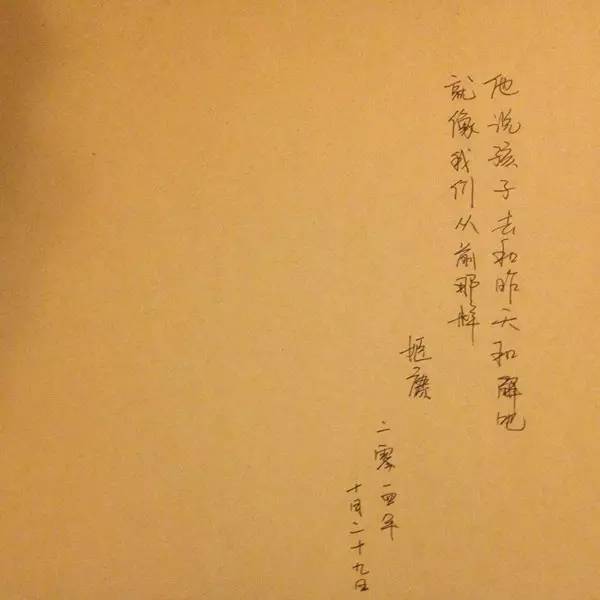 他说孩子去和昨天和解吧
就像我们从前那样
姬赓
二零一四年
十月二十九日